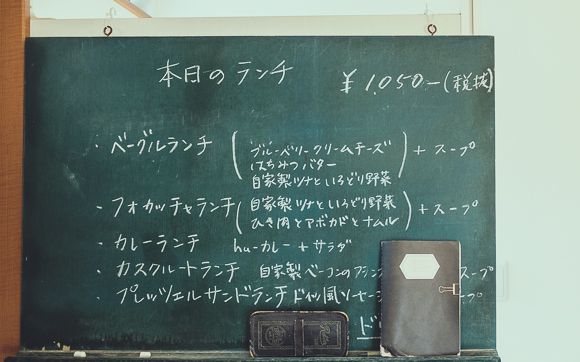 本日のランチ ¥1,050-(税抜)
・ベーグルランチ (ブルーベリークリームチーズ
はちみつバター
自家製ツナといろどり野菜) + スープ
・フォカッチャランチ (自家製ツナといろどり野菜
ひき肉とアボカドとナムル) + スープ
・カレーランチ huーカレー + サラダ
・カスクルートランチ 自家製ベーコンの スープ
・プレッツェルサンドランチ ドイツ風ソーセージ プ